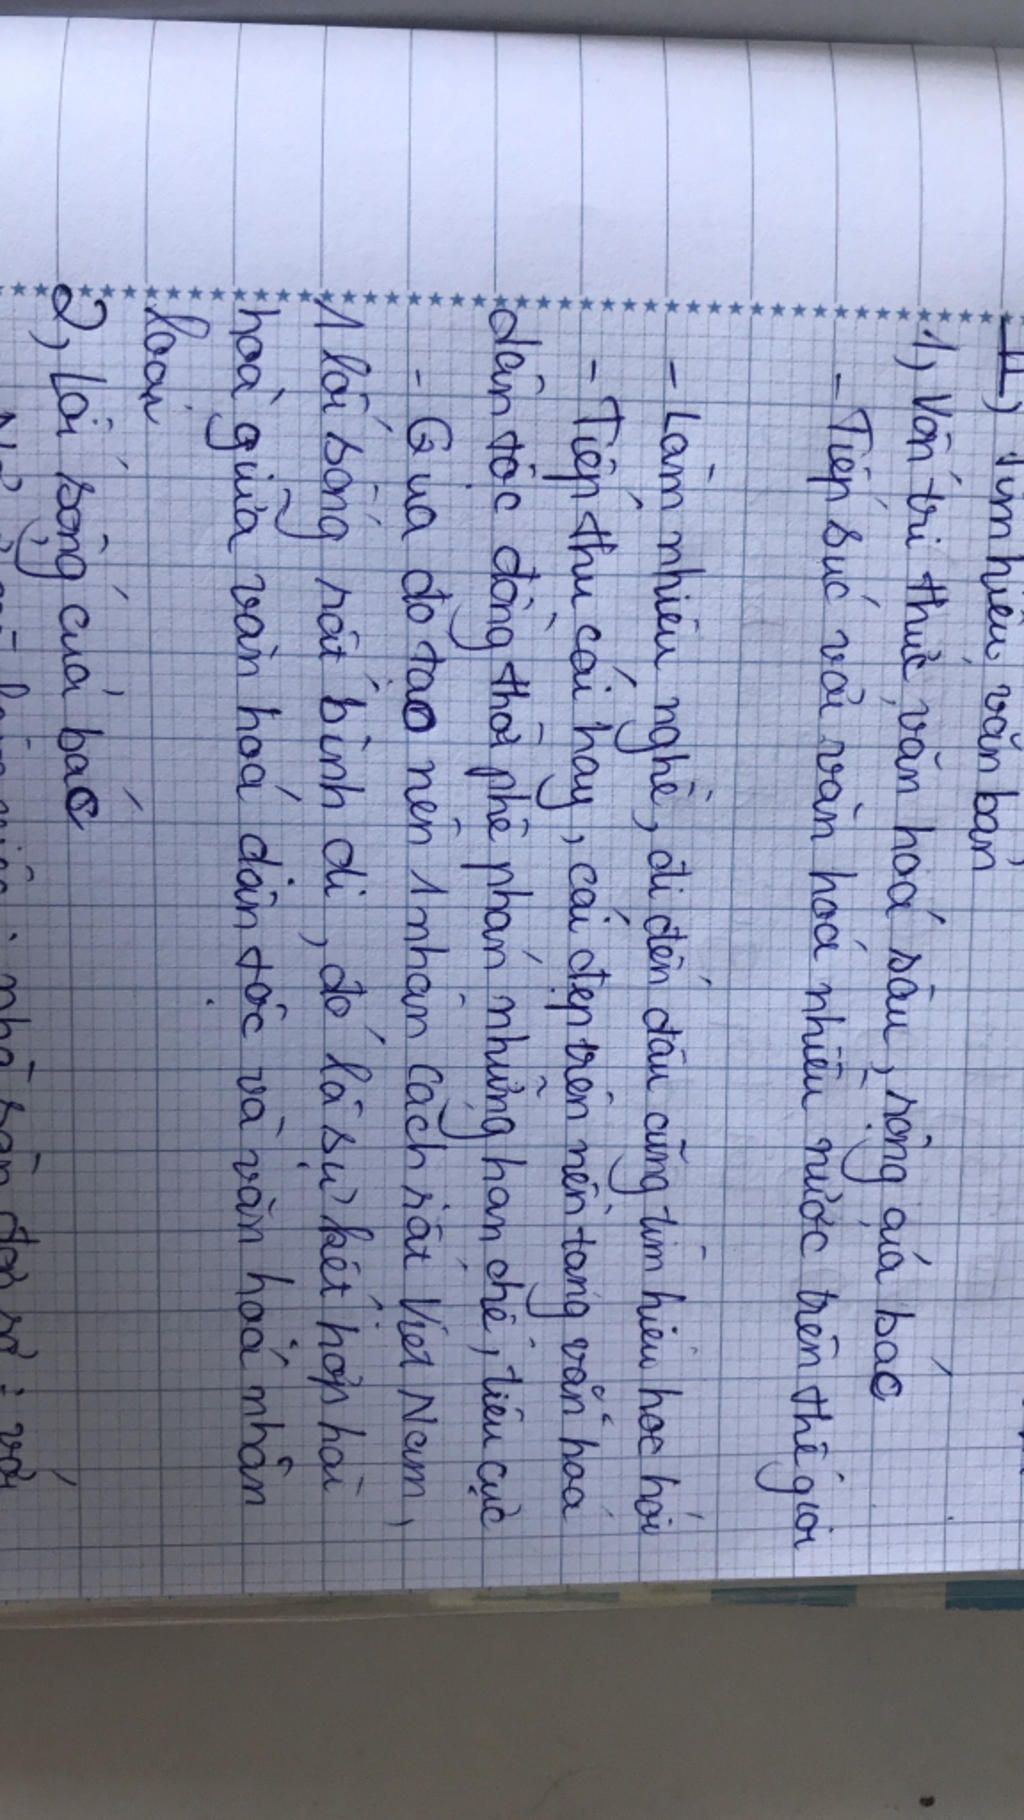 II) Tìm hiểu văn bản
1, Vốn tri thức văn hoá sâu, rộng của bác
- Tiếp xúc với văn hoá nhiều nước trên thế giới
- Làm nhiều nghề, đi đến đâu cũng tìm hiểu học hỏi
- Tiếp thu cái hay, cái đẹp trên nền tảng văn hoá
dân tộc đồng thời phê phán những hạn chế, tiêu cực
- Qua đó tạo nên 1 nhân cách rất Việt Nam,
1 lối sống rất bình dị, đó là sự kết hợp hài
hoà giữa văn hoá dân tộc và văn hoá nhân
loại
2, Lối sống của bác